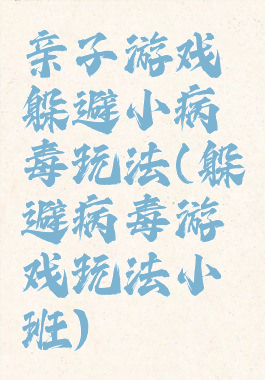 亲子游戏
躲避小病
毒玩法(躲
避病毒游
戏玩法小
班)